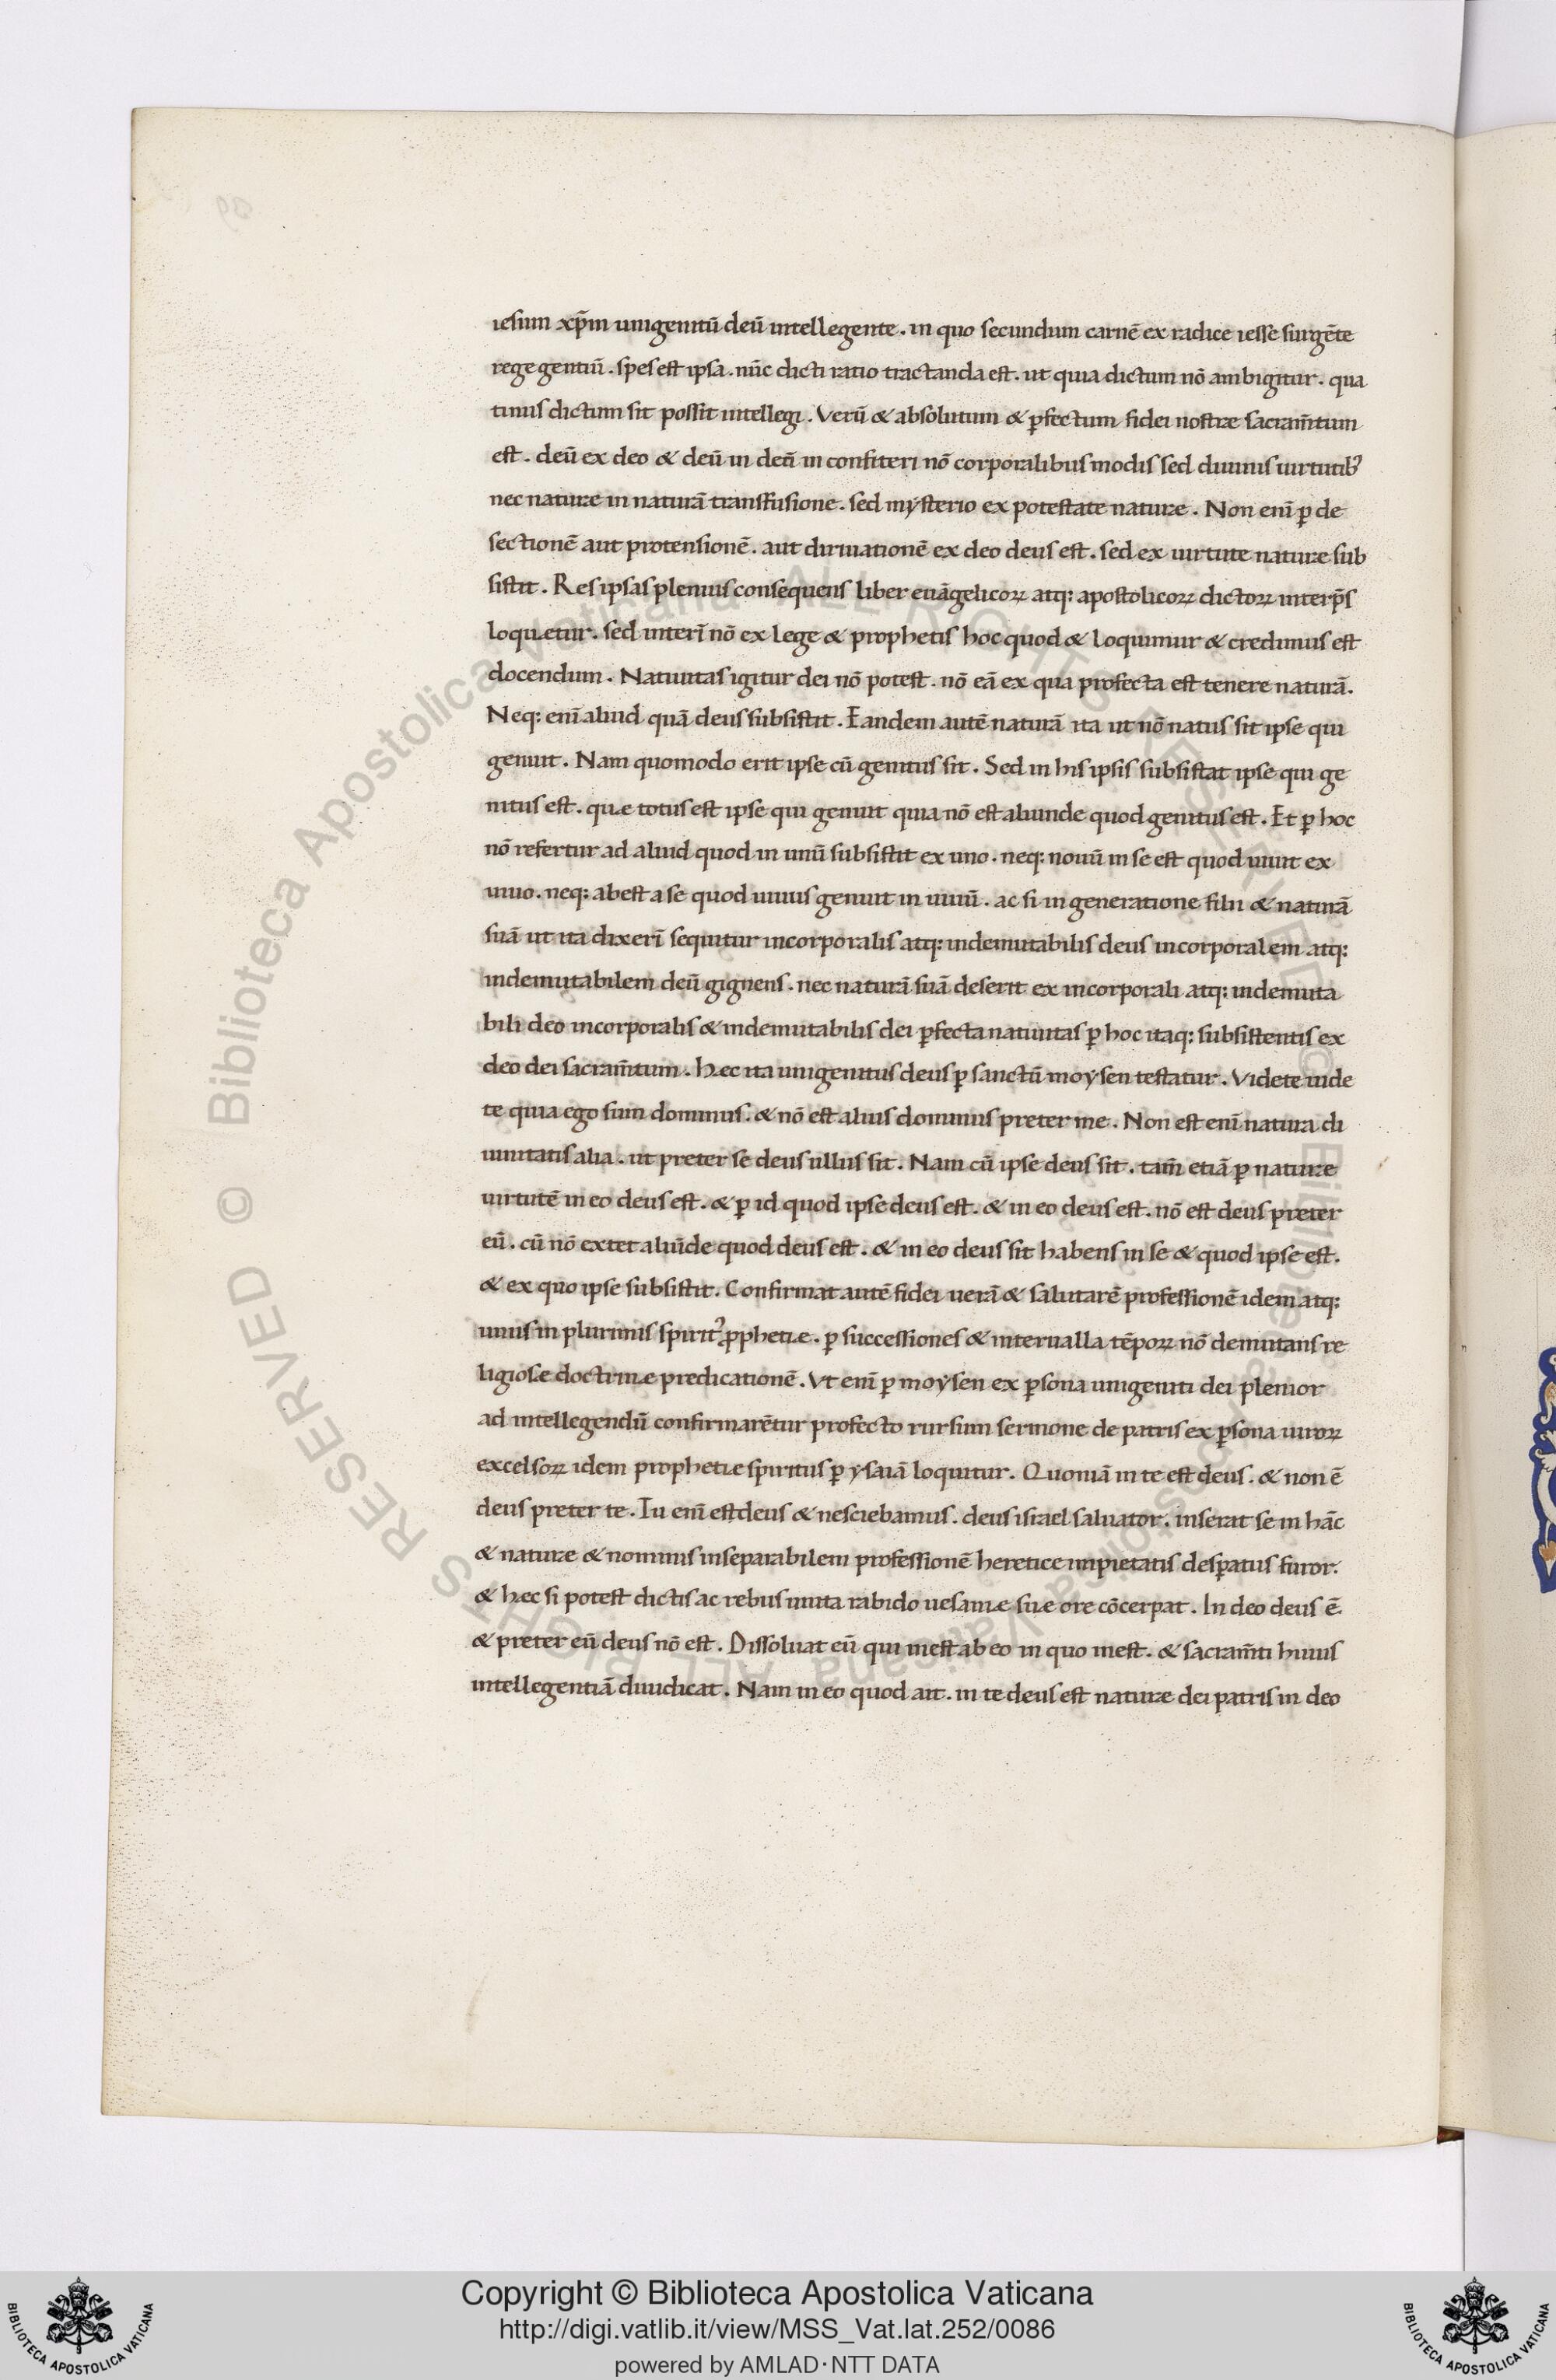 iesum xp̄m unigenitū deū intellegente. in quo secundum carnē ex radice iesse surgēte
rege gentiū. spes est ipsa. nūc dicti ratio tractanda est. ut quia dictum nō ambigitur. qua
tinus dictum sit possit intellegi. Verū & absolutum & ꝑfectum fidei nostræ sacram̄tum
est. deū ex deo & deū in deū in confiteri nō corporalibus modis sed diuinis uirtutibꝰ
nec naturæ in naturā transfusione. sed mysterio ex potestate naturæ. Non enī ꝑ de
sectionē aut protensionē. aut diriuationē ex deo deus est. sed ex uirtute naturæ sub
sistit. Res ipsas plenius consequens liber euāgelicoꝝ atq: apostolicoꝝ dictoꝝ interp̄s
loquetur. sed interī nō ex lege & prophetis hoc quod & loquimur & credimus est
docendum. Natiuitas igitur dei nō potest. nō eā ex qua profecta est tenere naturā.
Neq: enī aliud quā deus subsistit. Eandem autē naturā ita ut nō natus sit ipse qui
genuit. Nam quomodo erit ipse cū genitus sit. Sed in his ipsis subsistat ipse qui ge
nitus est. quæ totus est ipse qui genuit quia nō est aliunde quod genitus est. Et ꝑ hoc
nō refertur ad aliud quod in unū subsistit ex uno. neq: nouū in se est quod uiuit ex
uiuo. neq: abest a se quod uiuus genuit in uiuū. ac si in generatione filii & naturā
suā ut ita dixerī sequitur incorporalis atq: indemutabilis deus incorporalem atq:
indemutabilem deū gignens. nec naturā suā deserit ex incorporali atq: indemuta
bili deo incorporalis & indemutabilis dei ꝑfecta natiuitas ꝑ hoc itaq: subsistentis ex
deo dei sacram̄tum. hec ita unigenitus deus ꝑ sanctū moysen testatur. Videte uide
te quia ego sum dominus. & nō est alius dominus preter me. Non est enī natura di
uinitatis alia. ut preter se deus ullus sit. Nam cū ipse deus sit. tam̄ etiā ꝑ naturæ
uirtutē in eo deus est. & ꝑ id quod ipse deus est. & in eo deus est. nō est deus preter
eū. cū nō extet aliūde quod deus est. & in eo deus sit habens in se & quod ipse est.
& ex quo ipse subsistit. Confirmat autē fidei uerā & salutarē professionē idem atq:
unus in plurimis spiritꝰ ꝓphetiæ. ꝑ successiones & interualla tēpoꝝ nō demutans re
ligiosæ doctrinæ predicationē. Vt enī ꝑ moysen ex ꝑsona unigeniti dei plenior
ad intellegendū confirmarētur profecto rursum sermone de patris ex ꝑsona uiroꝝ
excelsoꝝ idem prophetiæ spiritus ꝑ ysaiā loquitur. Quoniā in te est deus. & non ē
deus preter te. Tu enī est deus & nesciebamus. deus israel saluator. inserat se in hāc
& naturæ & nominis inseparabilem professionē hereticæ impietatis desꝑatus furor.
& hec si potest dictis ac rebus iuuta rabido uesaniæ suæ ore cōcerpat. In deo deus ē.
& preter eū deus nō est. Dissoluat eū qui inest ab eo in quo inest. & sacram̄ti huius
intellegentiā diuudicat. Nam in eo quod ait. in te deus est naturæ dei patris in deo
© Biblioteca Apostolica Vaticana ALL RIGHTS RESERVED © Biblioteca Apostolica Vaticana ALL RIGHTS RESERVED
Copyright © Biblioteca Apostolica Vaticana
http://digi.vatlib.it/view/MSS_Vat.lat.252/0086
powered by AMLAD·NTT DATA
BIBLIOTECA APOSTOLICA VATICANA
BIBLIOTECA APOSTOLICA VATICANA